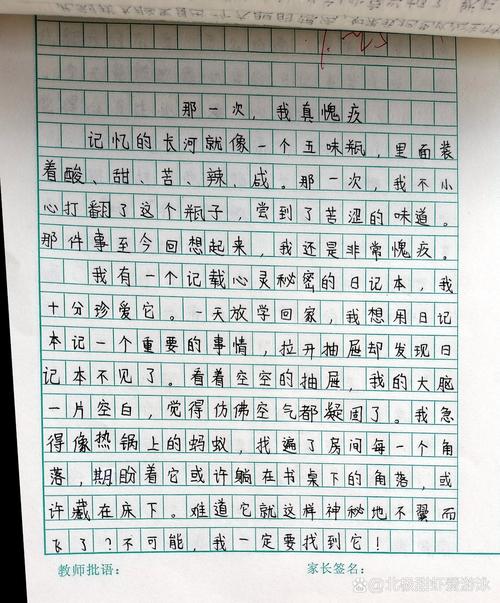 那一次，我真愧疚
记忆的长河就像一个五味瓶，里面装
着酸、甜、苦、辣、咸。那一次，我不小
心打翻了这个瓶子，尝到了苦涩的味道。
那件事至今回想起来，我还是非常愧疚。
我有一个记载心灵秘密的日记本，我
十分珍爱它。一天放学回家，我想用日记
本记一个重要的事情，拉开抽屉却发现日
记本不见了。看着空空的抽屉，我的大脑
一片空白，觉得仿佛空气都凝固了。我急
得像热锅上的蚂蚁，找遍了房间每一个角
落，期盼着它或许躺在书桌下的角落，或
许藏在床下。难道它就这样神秘地不翼而
飞了？不可能，我一定要找到它！
教师批语： 家长签名：